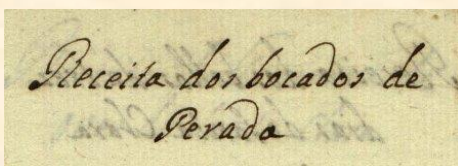 Receita dos bocados de
Perada